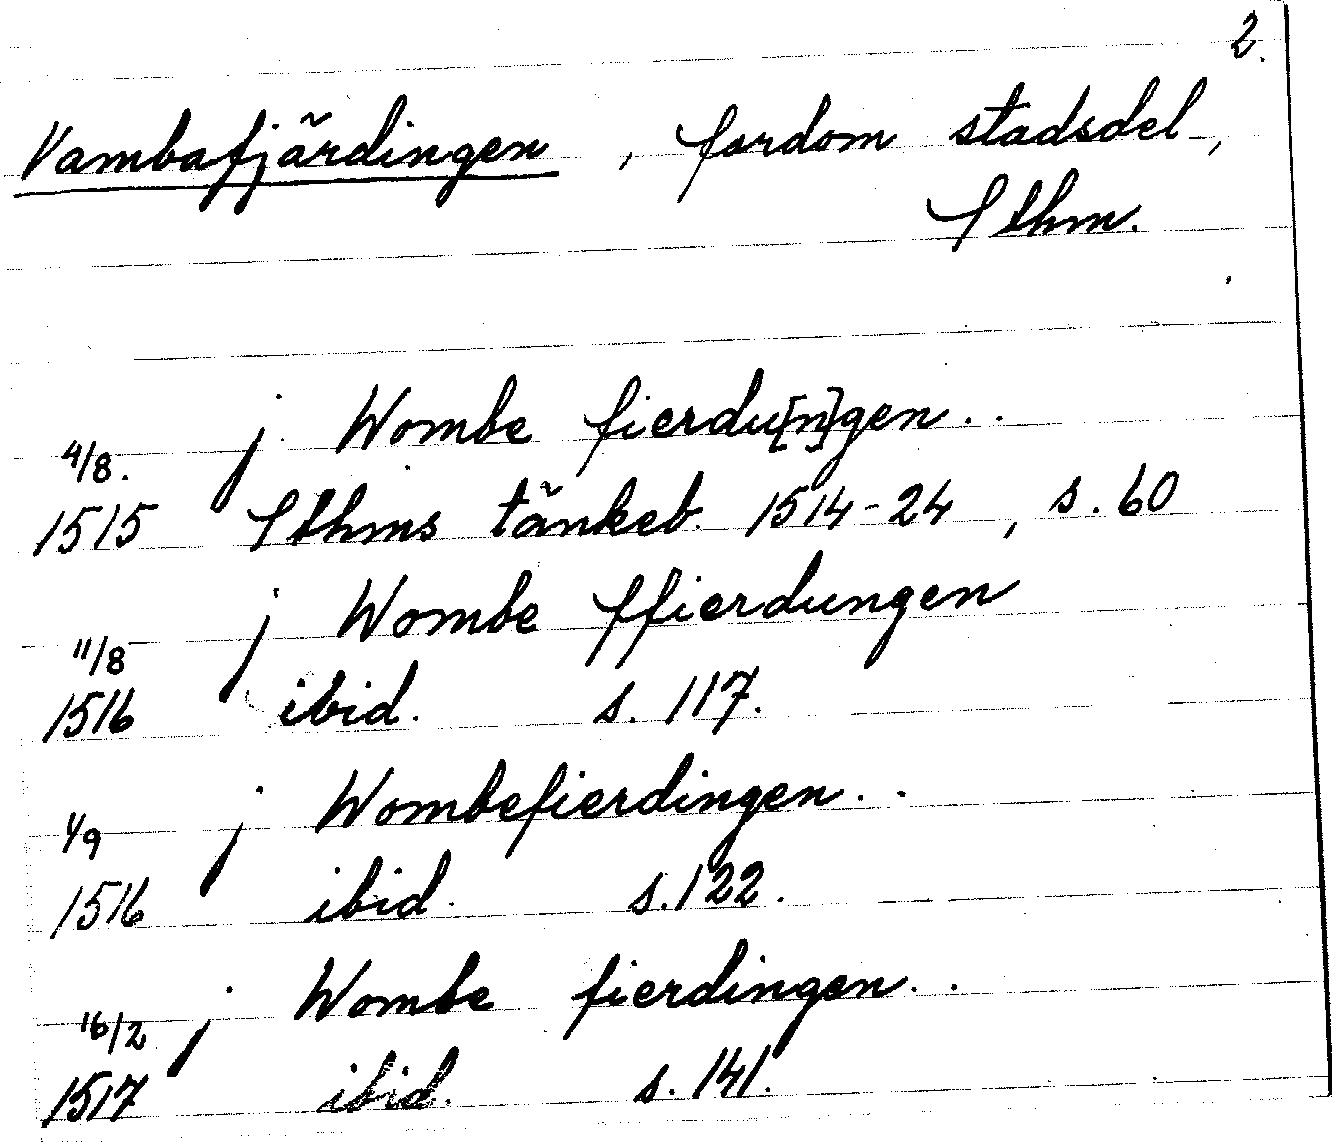 2.
Vambafjärdingen, fordom stadsdel,
Sthm.
j Wombe fierdu[n]gen..
4/8.
1515 Sthms tänkeb. 1514-24, s. 60
j Wombe ffierdungen
11/8
1516 ibid. s. 117.
j Wombefierdingen..
1/9
1516 ibid. s. 122.
j Wombe fierdingen..
16/2
1517 ibid. s. 141.